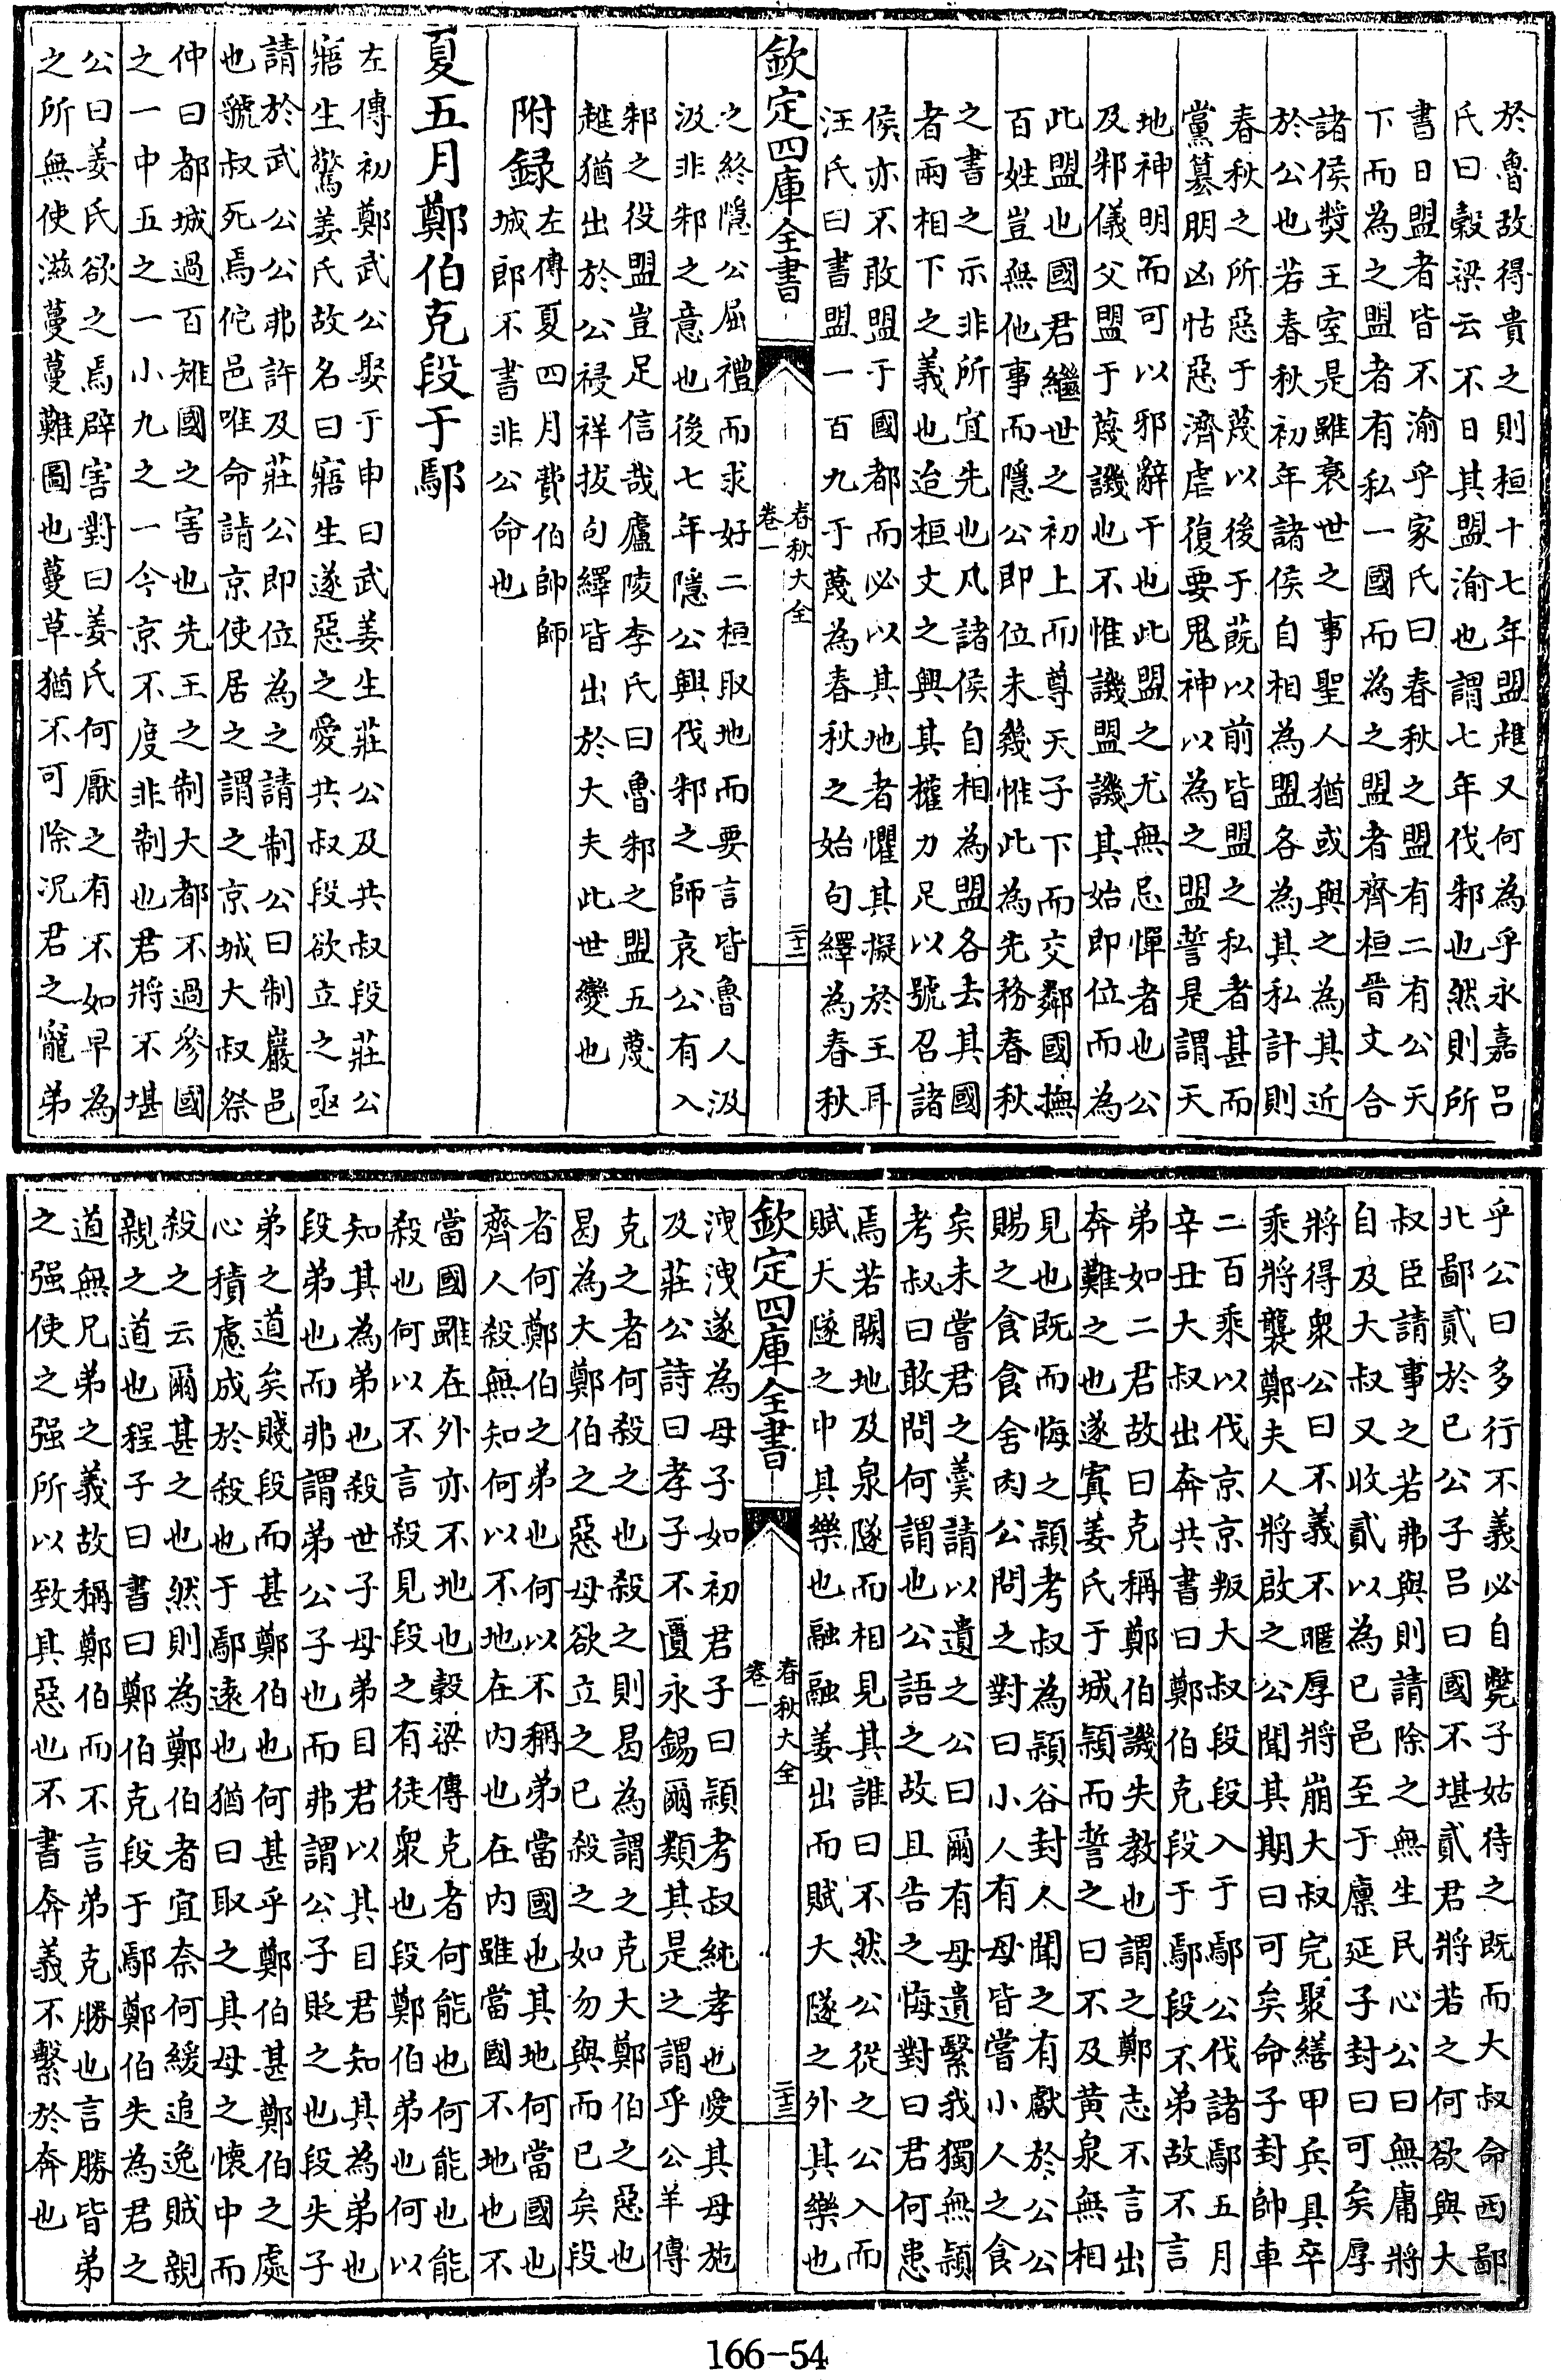 於魯故得貴之則桓十七年盟趡又何為乎永嘉呂
氏曰穀梁云不日其盟渝也謂七年伐邾也然則所
書日盟者皆不渝乎家氏曰春秋之盟有二有公天
下而為之盟者有私一國而為之盟者齊桓晉文合
諸侯奬王室是雖衰世之事聖人猶或與之為其近
於公也若春秋初年諸侯自相為盟各為其私計則
春秋之所惡于蔑以後于蔇以前皆盟之私者甚而
黨簒朋凶怙惡濟虐復要鬼神以為之盟誓是謂天
地神明而可以邪辭干也此盟之尤無忌憚者也公
及邾儀父盟于蔑譏也不惟譏盟譏其始即位而為
此盟也國君繼世之初上而尊天子下而交鄰國撫
百姓豈無他事而隱公即位未幾惟此為先務春秋
之書之示非所宜先也凡諸侯自相為盟各去其國
者兩相下之義也迨桓文之興其權力足以號召諸
侯亦不敢盟于國都而必以其地者懼其擬於王耳
汪氏曰書盟一百九于蔑為春秋之始句繹為春秋
欽定四庫全書
春秋大全
卷一
二十二
之終隱公屈禮而求好二桓取地而要言皆魯人汲
汲非邾之意也後七年隱公興伐邾之師哀公有入
邾之役盟豈足信哉廬陵李氏曰魯邾之盟五蔑
趡猶出於公祲祥拔句繹皆出於大夫此世變也
附録
左傳夏四月費伯帥師
城郎不書非公命也
夏五月鄭伯克段于鄢
左傳初鄭武公娶于申曰武姜生莊公及共叔段莊公
寤生驚姜氏故名曰寤生遂惡之愛共叔段欲立之亟
請於武公公弗許及莊公即位為之請制公曰制巖邑
也虢叔死焉佗邑唯命請京使居之謂之京城大叔祭
仲曰都城過百雉國之害也先王之制大都不過參國
之一中五之一小九之一今京不度非制也君將不堪
公曰姜氏欲之焉辟害對曰姜氏何厭之有不如早為
之所無使滋蔓蔓難圖也蔓草猶不可除况君之寵弟
乎公曰多行不義必自斃子姑待之既而大叔命西鄙
北鄙貳於已公子呂曰國不堪貳君將若之何欲與大
叔臣請事之若弗與則請除之無生民心公曰無庸將
自及大叔又收貳以為已邑至于廪延子封曰可矣厚
將得衆公曰不義不暱厚將崩大叔完聚繕甲兵具卒
乘將襲鄭夫人將啟之公聞其期曰可矣命子封帥車
二百乘以伐京京叛大叔段段入于鄢公伐諸鄢五月
辛丑大叔出奔共書曰鄭伯克段于鄢段不弟故不言
弟如二君故曰克稱鄭伯譏失教也謂之鄭志不言出
奔難之也遂寘姜氏于城潁而誓之曰不及黄泉無相
見也既而悔之潁考叔為潁谷封人聞之有獻於公公
賜之食食舍肉公問之對曰小人有母皆嘗小人之食
矣未嘗君之羹請以遺之公曰爾有母遺繄我獨無潁
考叔曰敢問何謂也公語之故且告之悔對曰君何患
焉若闕地及泉隧而相見其誰曰不然公從之公入而
賦大隧之中其樂也融融姜出而賦大隧之外其樂也
欽定四庫全書
春秋大全
卷一
二十三
洩洩遂為母子如初君子曰潁考叔純孝也愛其母施
及莊公詩曰孝子不匱永錫爾類其是之謂乎公羊傳
克之者何殺之也殺之則曷為謂之克大鄭伯之惡也
曷為大鄭伯之惡母欲立之已殺之如勿與而已矣段
者何鄭伯之弟也何以不稱弟當國也其地何當國也
齊人殺無知何以不地在内也在内雖當國不地也不
當國雖在外亦不地也穀梁傳克者何能也何能也能
殺也何以不言殺見段之有徒衆也段鄭伯弟也何以
知其為弟也殺世子母弟目君以其目君知其為弟也
段弟也而弗謂弟公子也而弗謂公子貶之也段失子
弟之道矣賤段而甚鄭伯也何甚乎鄭伯甚鄭伯之處
心積慮成於殺也于鄢遠也猶曰取之其母之懷中而
殺之云爾甚之也然則為鄭伯者宜奈何緩追逸賊親
親之道也程子曰書曰鄭伯克段于鄢鄭伯失為君之
道無兄弟之義故稱鄭伯而不言弟克勝也言勝皆弟
之强使之强所以致其惡也不書奔義不繫於奔也
166-54